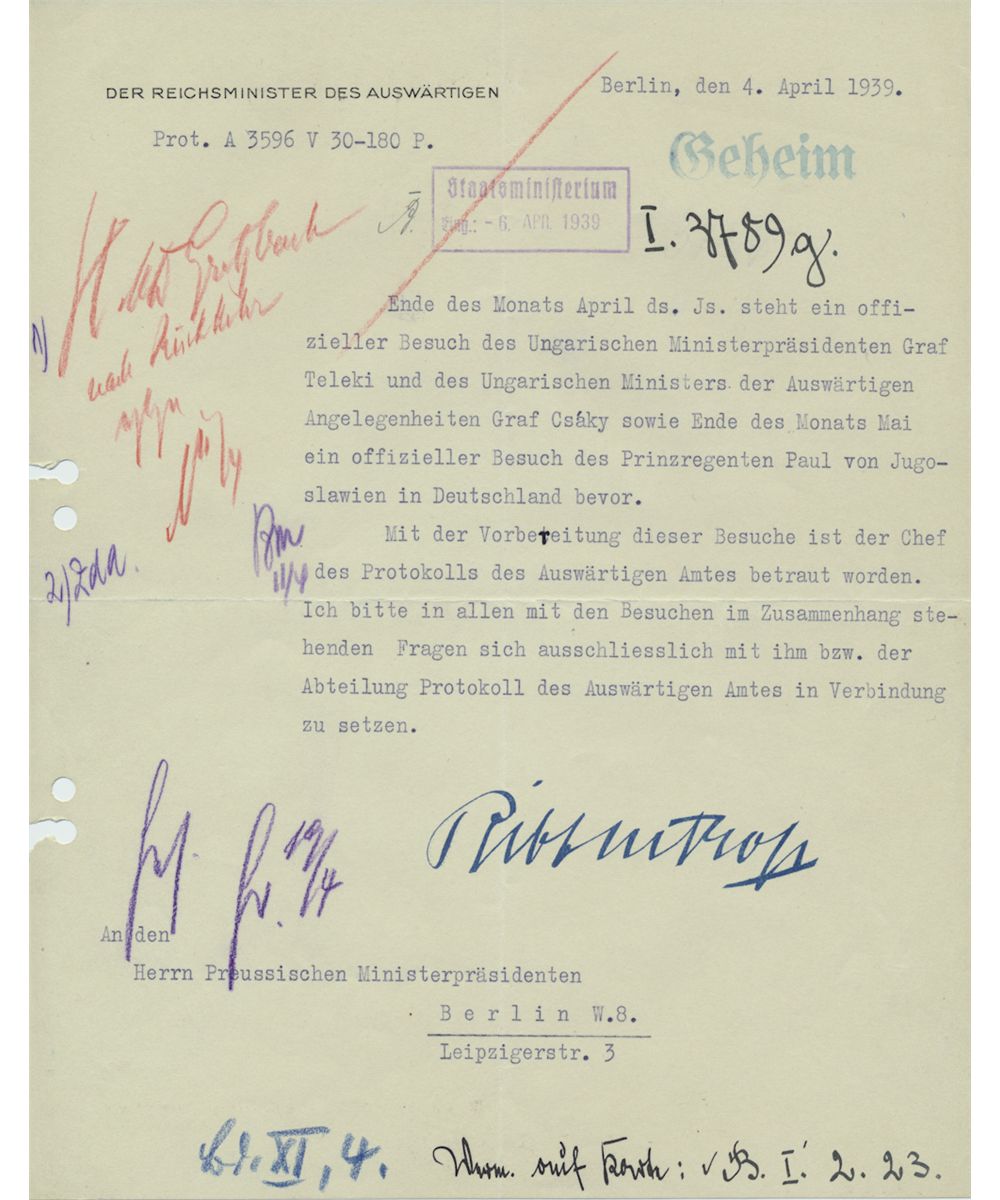 DER REICHSMINISTER DES AUSWÄRTIGEN
Berlin, den 4. April 1939.
Prot. A 3596 V 30-180 P.
Geheim
Staatsministerium
Eing.: - 6. APR. 1939
I. 3789 g.
nach Rückkehr
11/4
1)
Ende des Monats April ds. Js. steht ein offi-
zieller Besuch des Ungarischen Ministerpräsidenten Graf
Teleki und des Ungarischen Ministers der Auswärtigen
Angelegenheiten Graf Csáky sowie Ende des Monats Mai
ein offizieller Besuch des Prinzregenten Paul von Jugo-
slawien in Deutschland bevor.
Mit der Vorbereitung dieser Besuche ist der Chef
des Protokolls des Auswärtigen Amtes betraut worden.
Ich bitte in allen mit den Besuchen im Zusammenhang ste-
henden Fragen sich ausschliesslich mit ihm bzw. der
Abteilung Protokoll des Auswärtigen Amtes in Verbindung
zu setzen.
11/4
2) Zda.
Ribbentrop
19/4
An den
Herrn Preussischen Ministerpräsidenten
Berlin W.8.
Leipzigerstr. 3
Bd. XI, 4.
Verm. auf Karte: B. I. 2. 23.